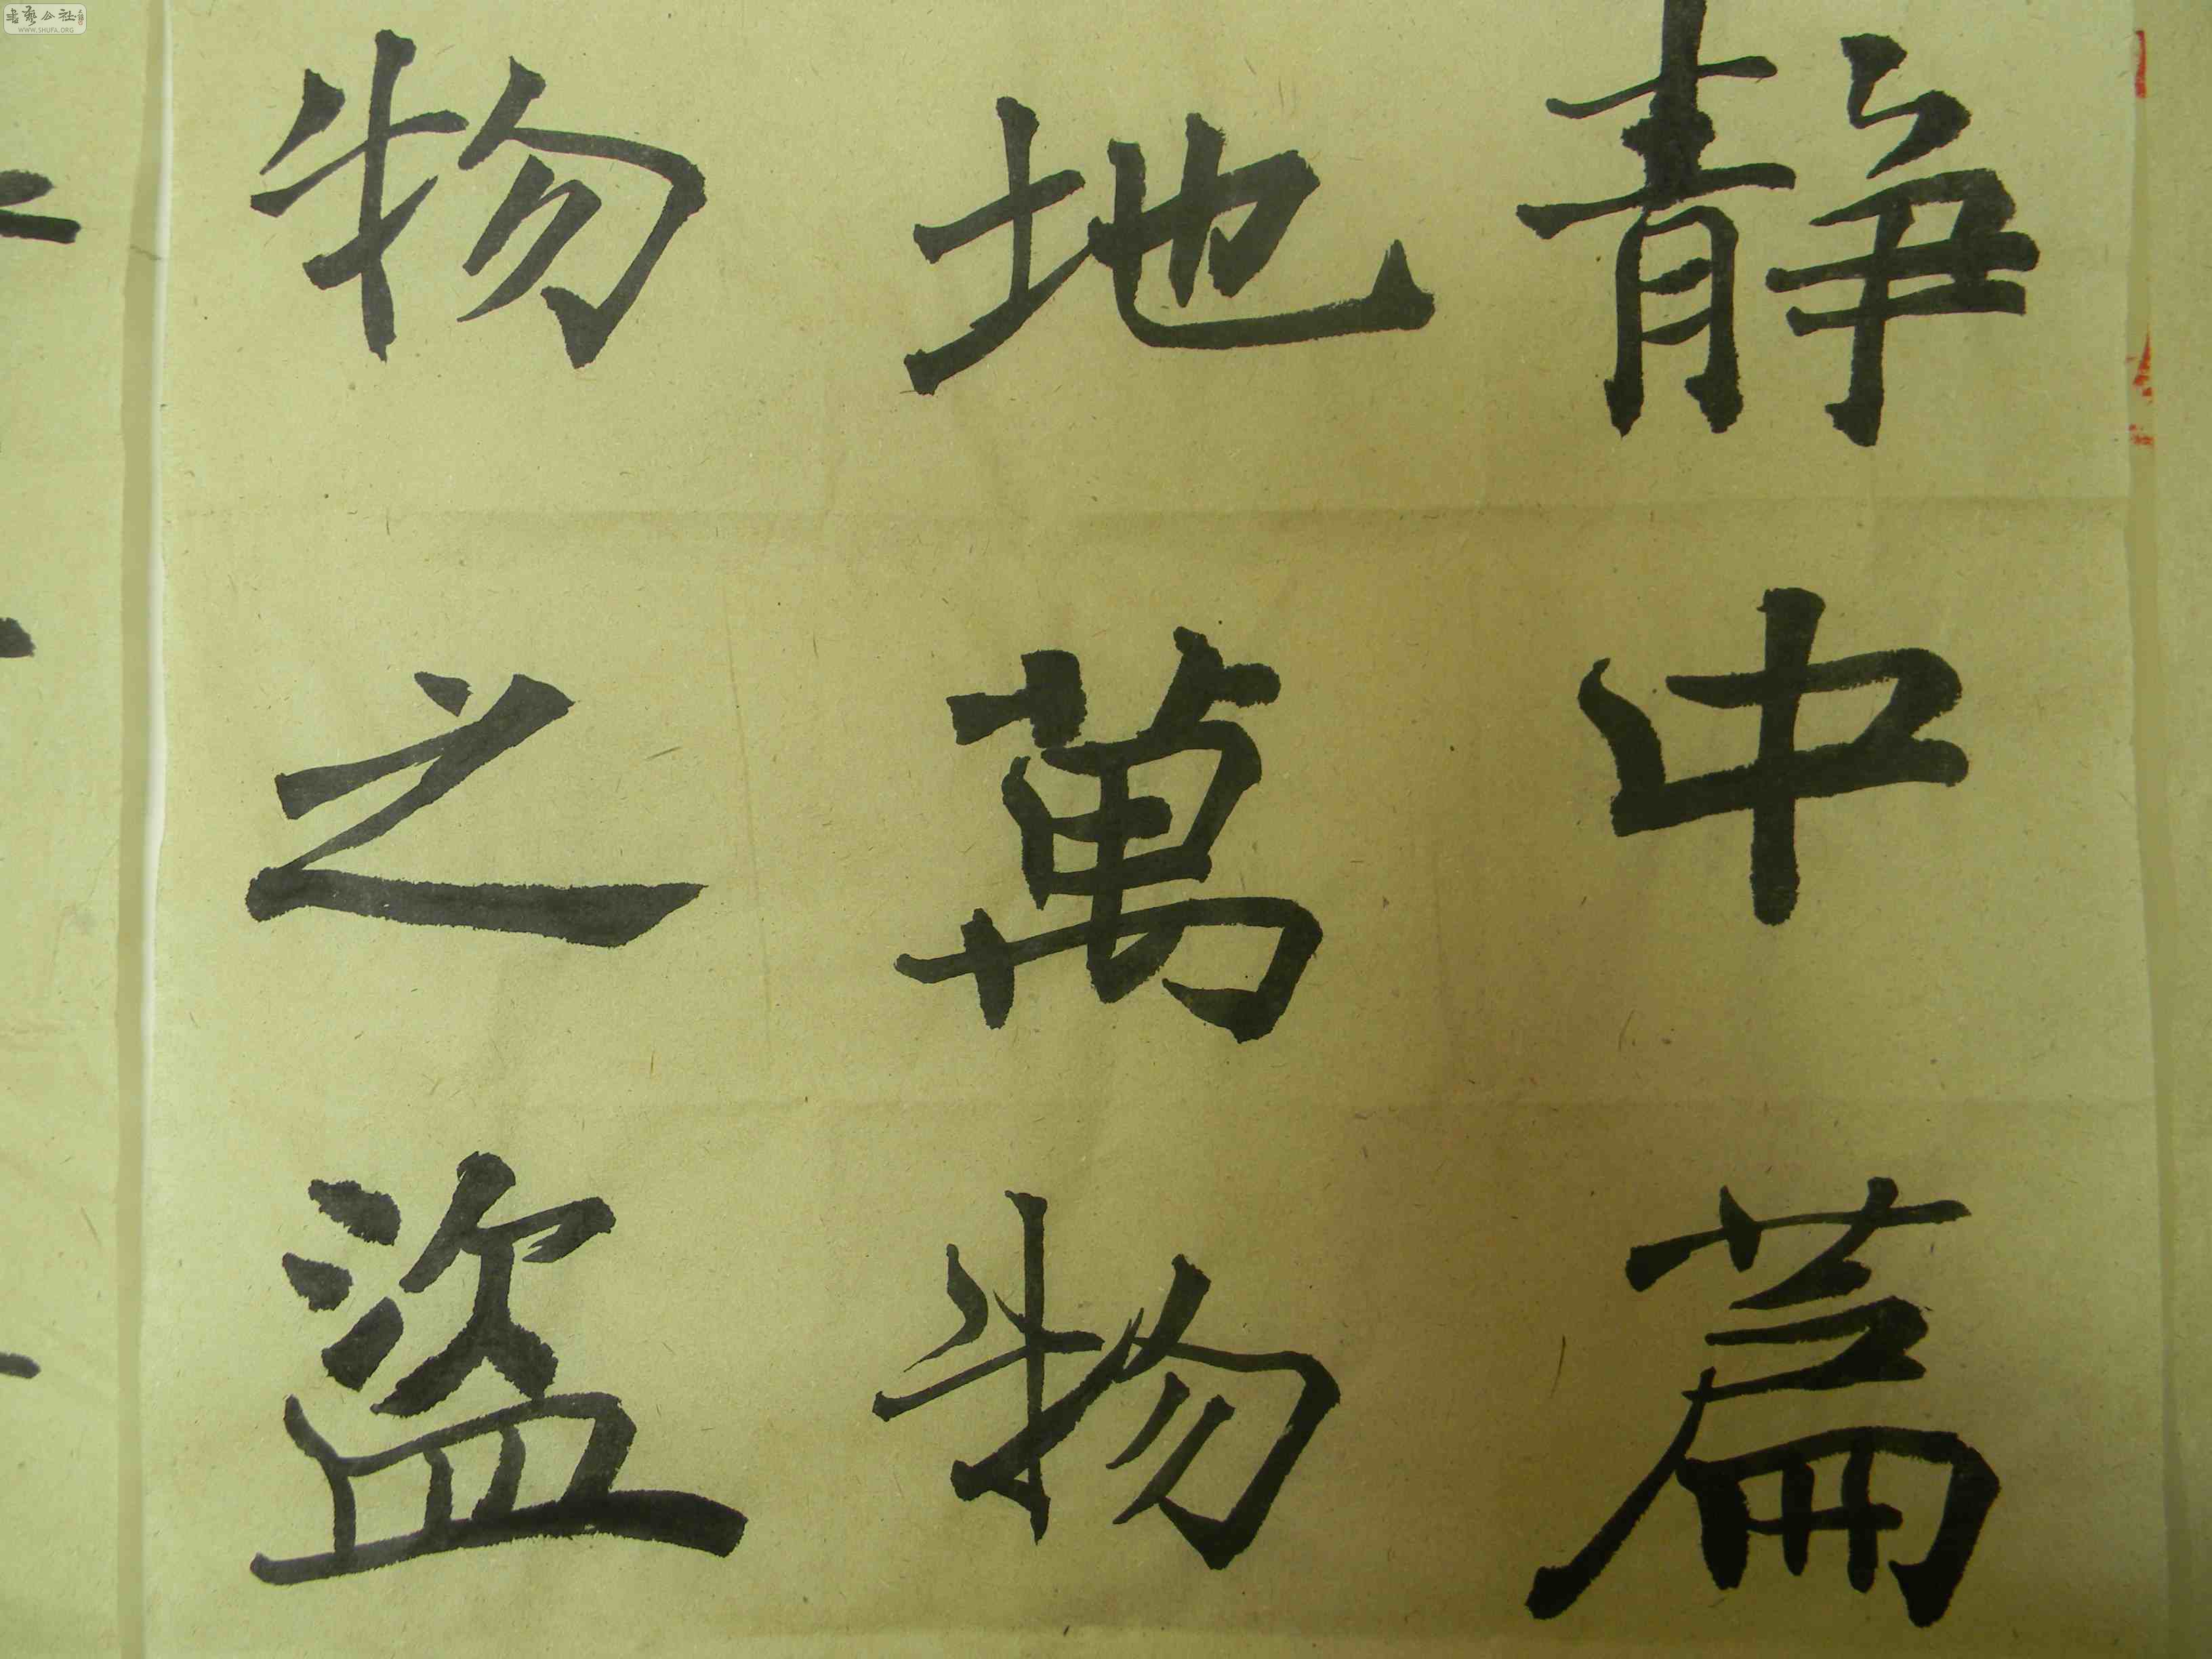 静中篇
地萬物
物之盜
書藝公社
WWW.SHUFA.ORG